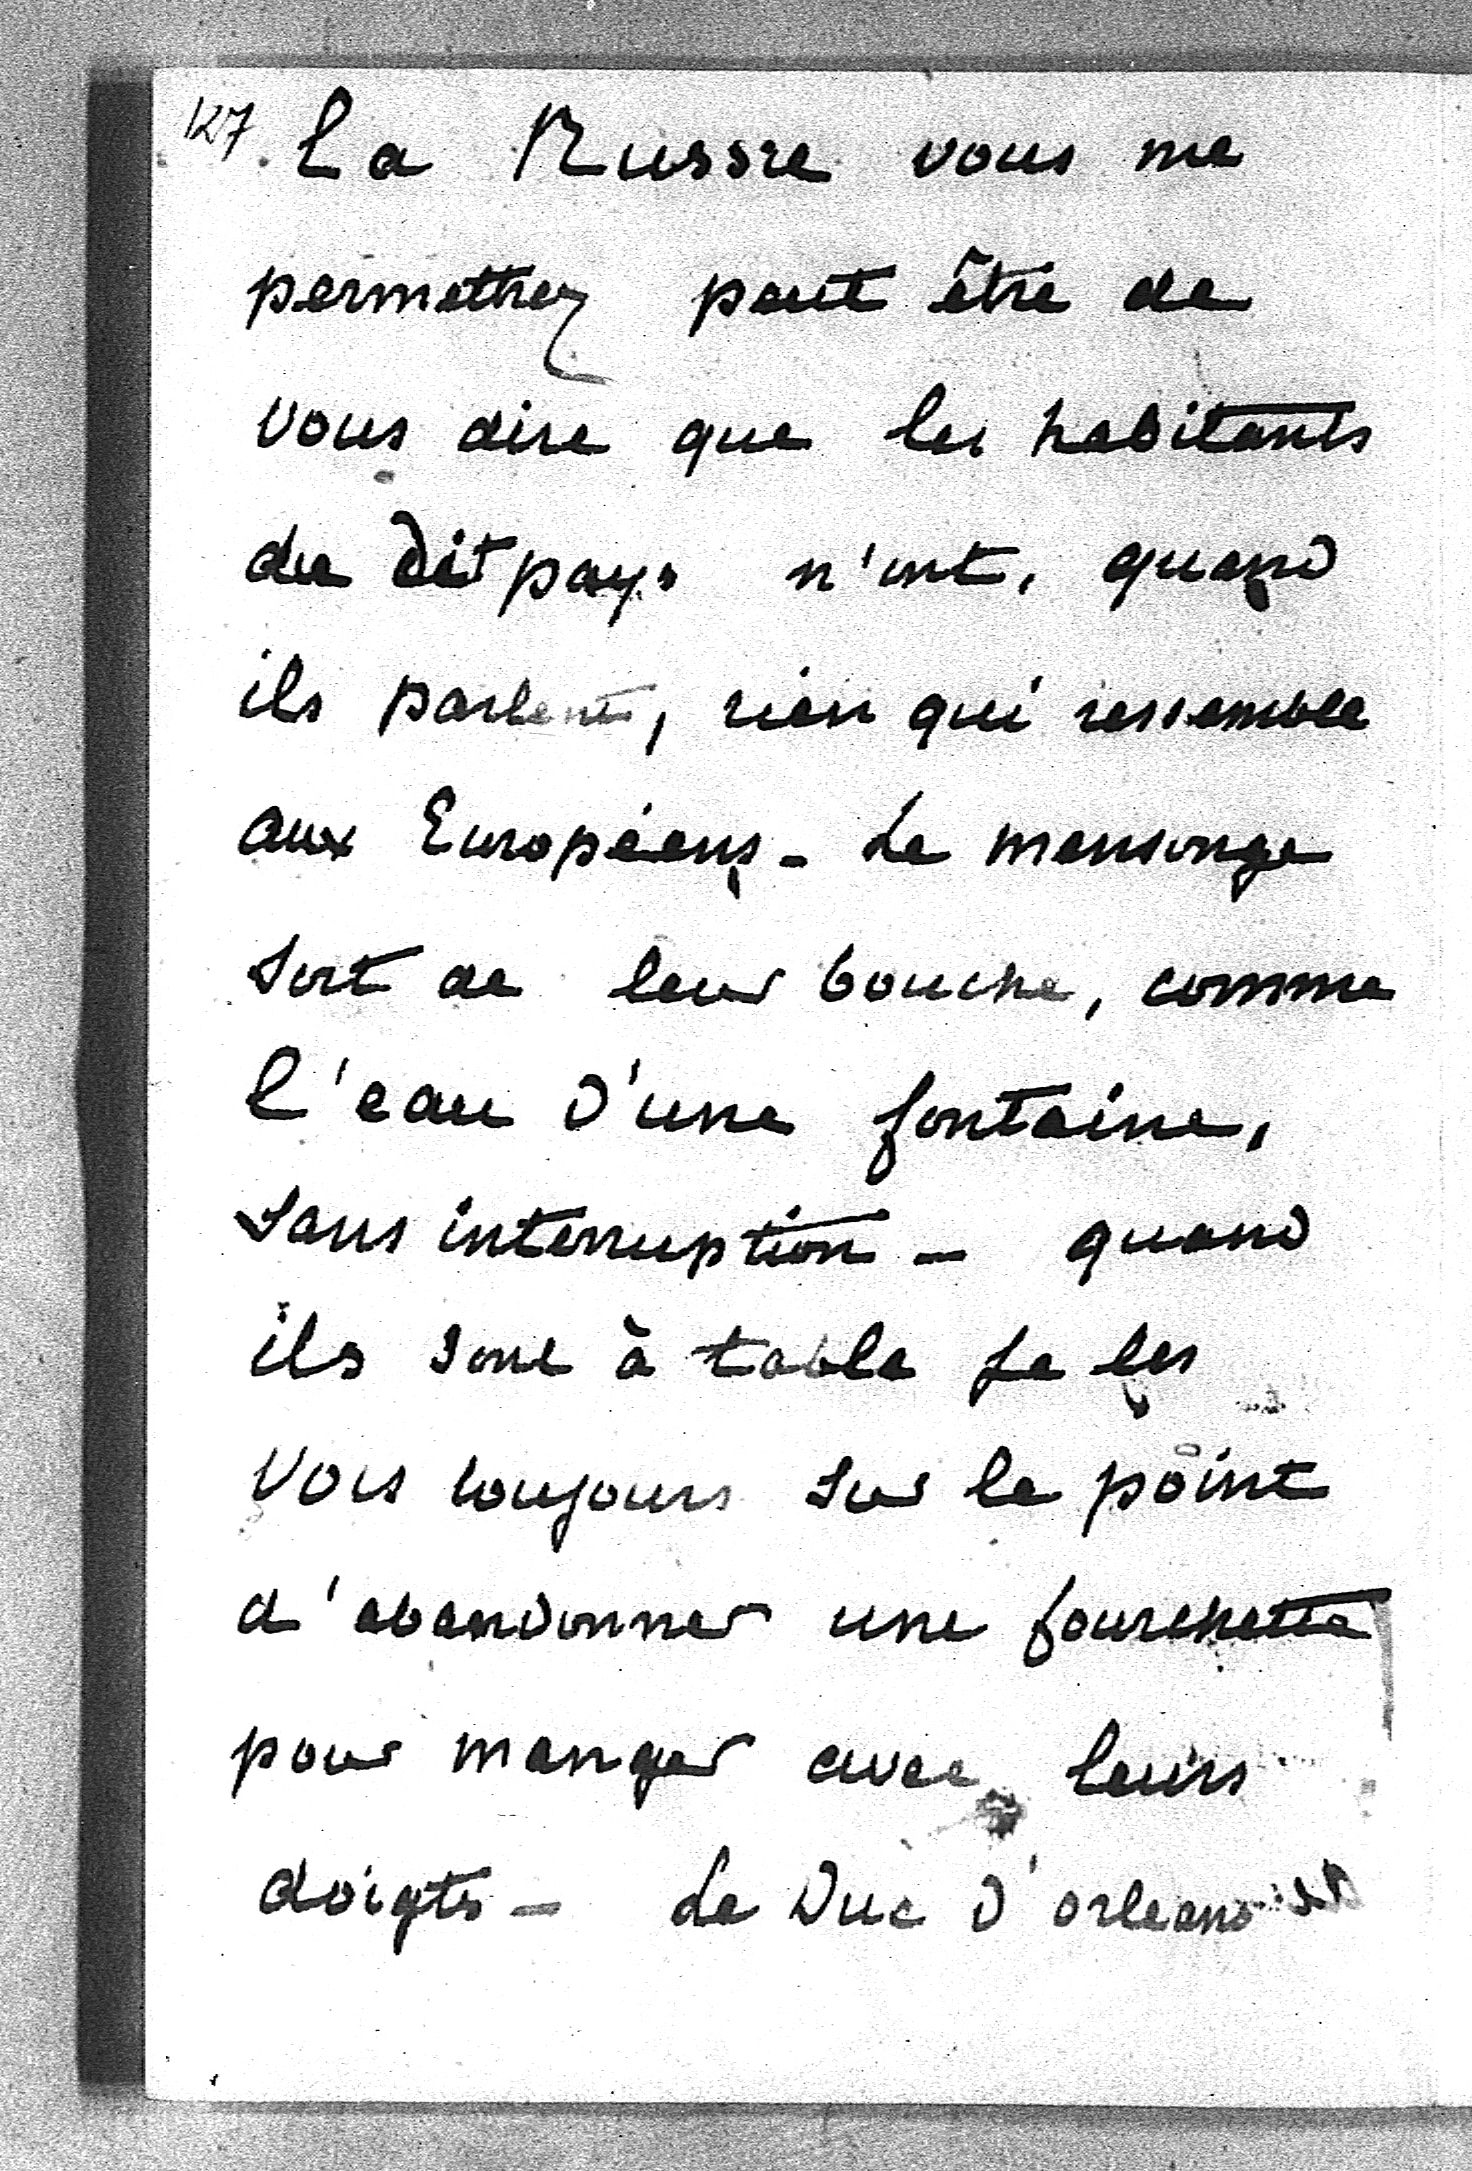 127
La Russie vous me
permettrez peut être de
vous dire que les habitants
du dit pays n'ont, quand
ils parlent, rien qui ressemble
aux Européens - Le mensonge
sort de leur bouche, comme
l'eau d'une fontaine,
sans interruption - quand
ils sont à table je les
vois toujours sur le point
d'abandonner une fourchette
pour manger avec leurs
doigts - Le Duc d'orleans